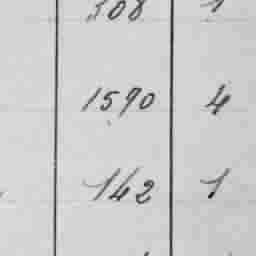 308 1
1590 4
142 1